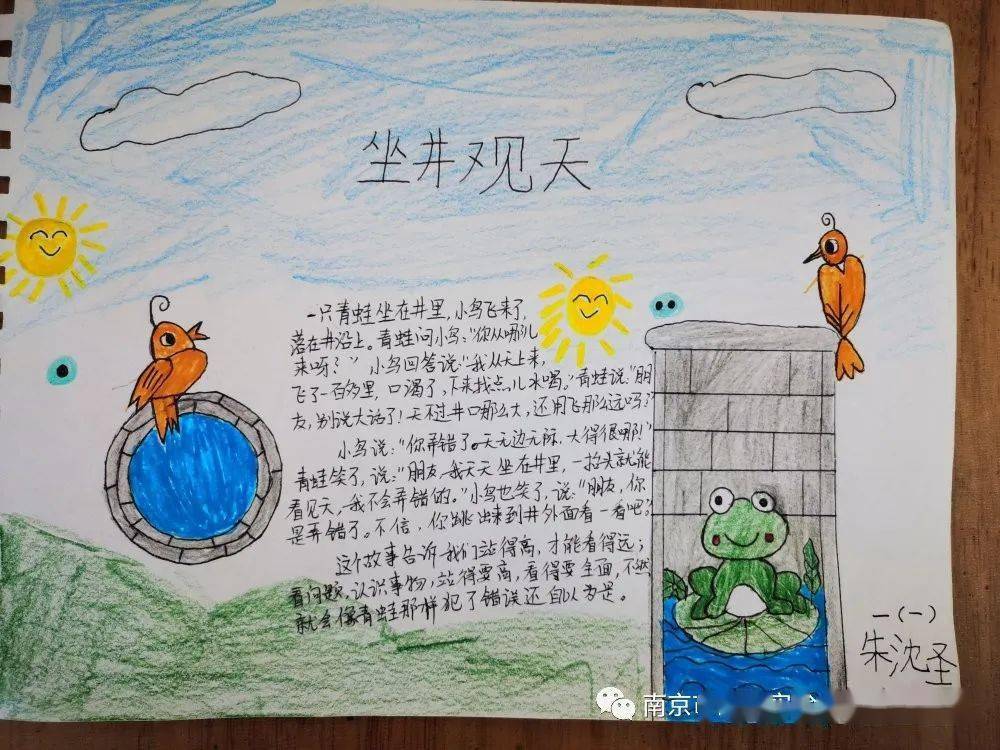 坐井观天
一只青蛙坐在井里,小鸟飞来了,
落在井沿上。青蛙问小鸟:“你从哪儿
来呀?” 小鸟回答说:“我从天上来,
飞了一百多里,口渴了,下来找点儿水喝。”青蛙说:“朋
友,别说大话了!天不过井口那么大,还用飞那么远吗?”
小鸟说:“你弄错了。天无边无际,大得很哪!”
青蛙笑了,说:“朋友,我天天坐在井里,一抬头就能
看见天,我不会弄错的。”小鸟也笑了,说:“朋友,你
是弄错了。不信,你跳出来到井外面看一看吧。”
这个故事告诉我们站得高,才能看得远;
看问题,认识事物,站得要高,看得要全面,不然
就会像青蛙那样犯了错误还自以为是。
一(一)
朱沈圣
南京